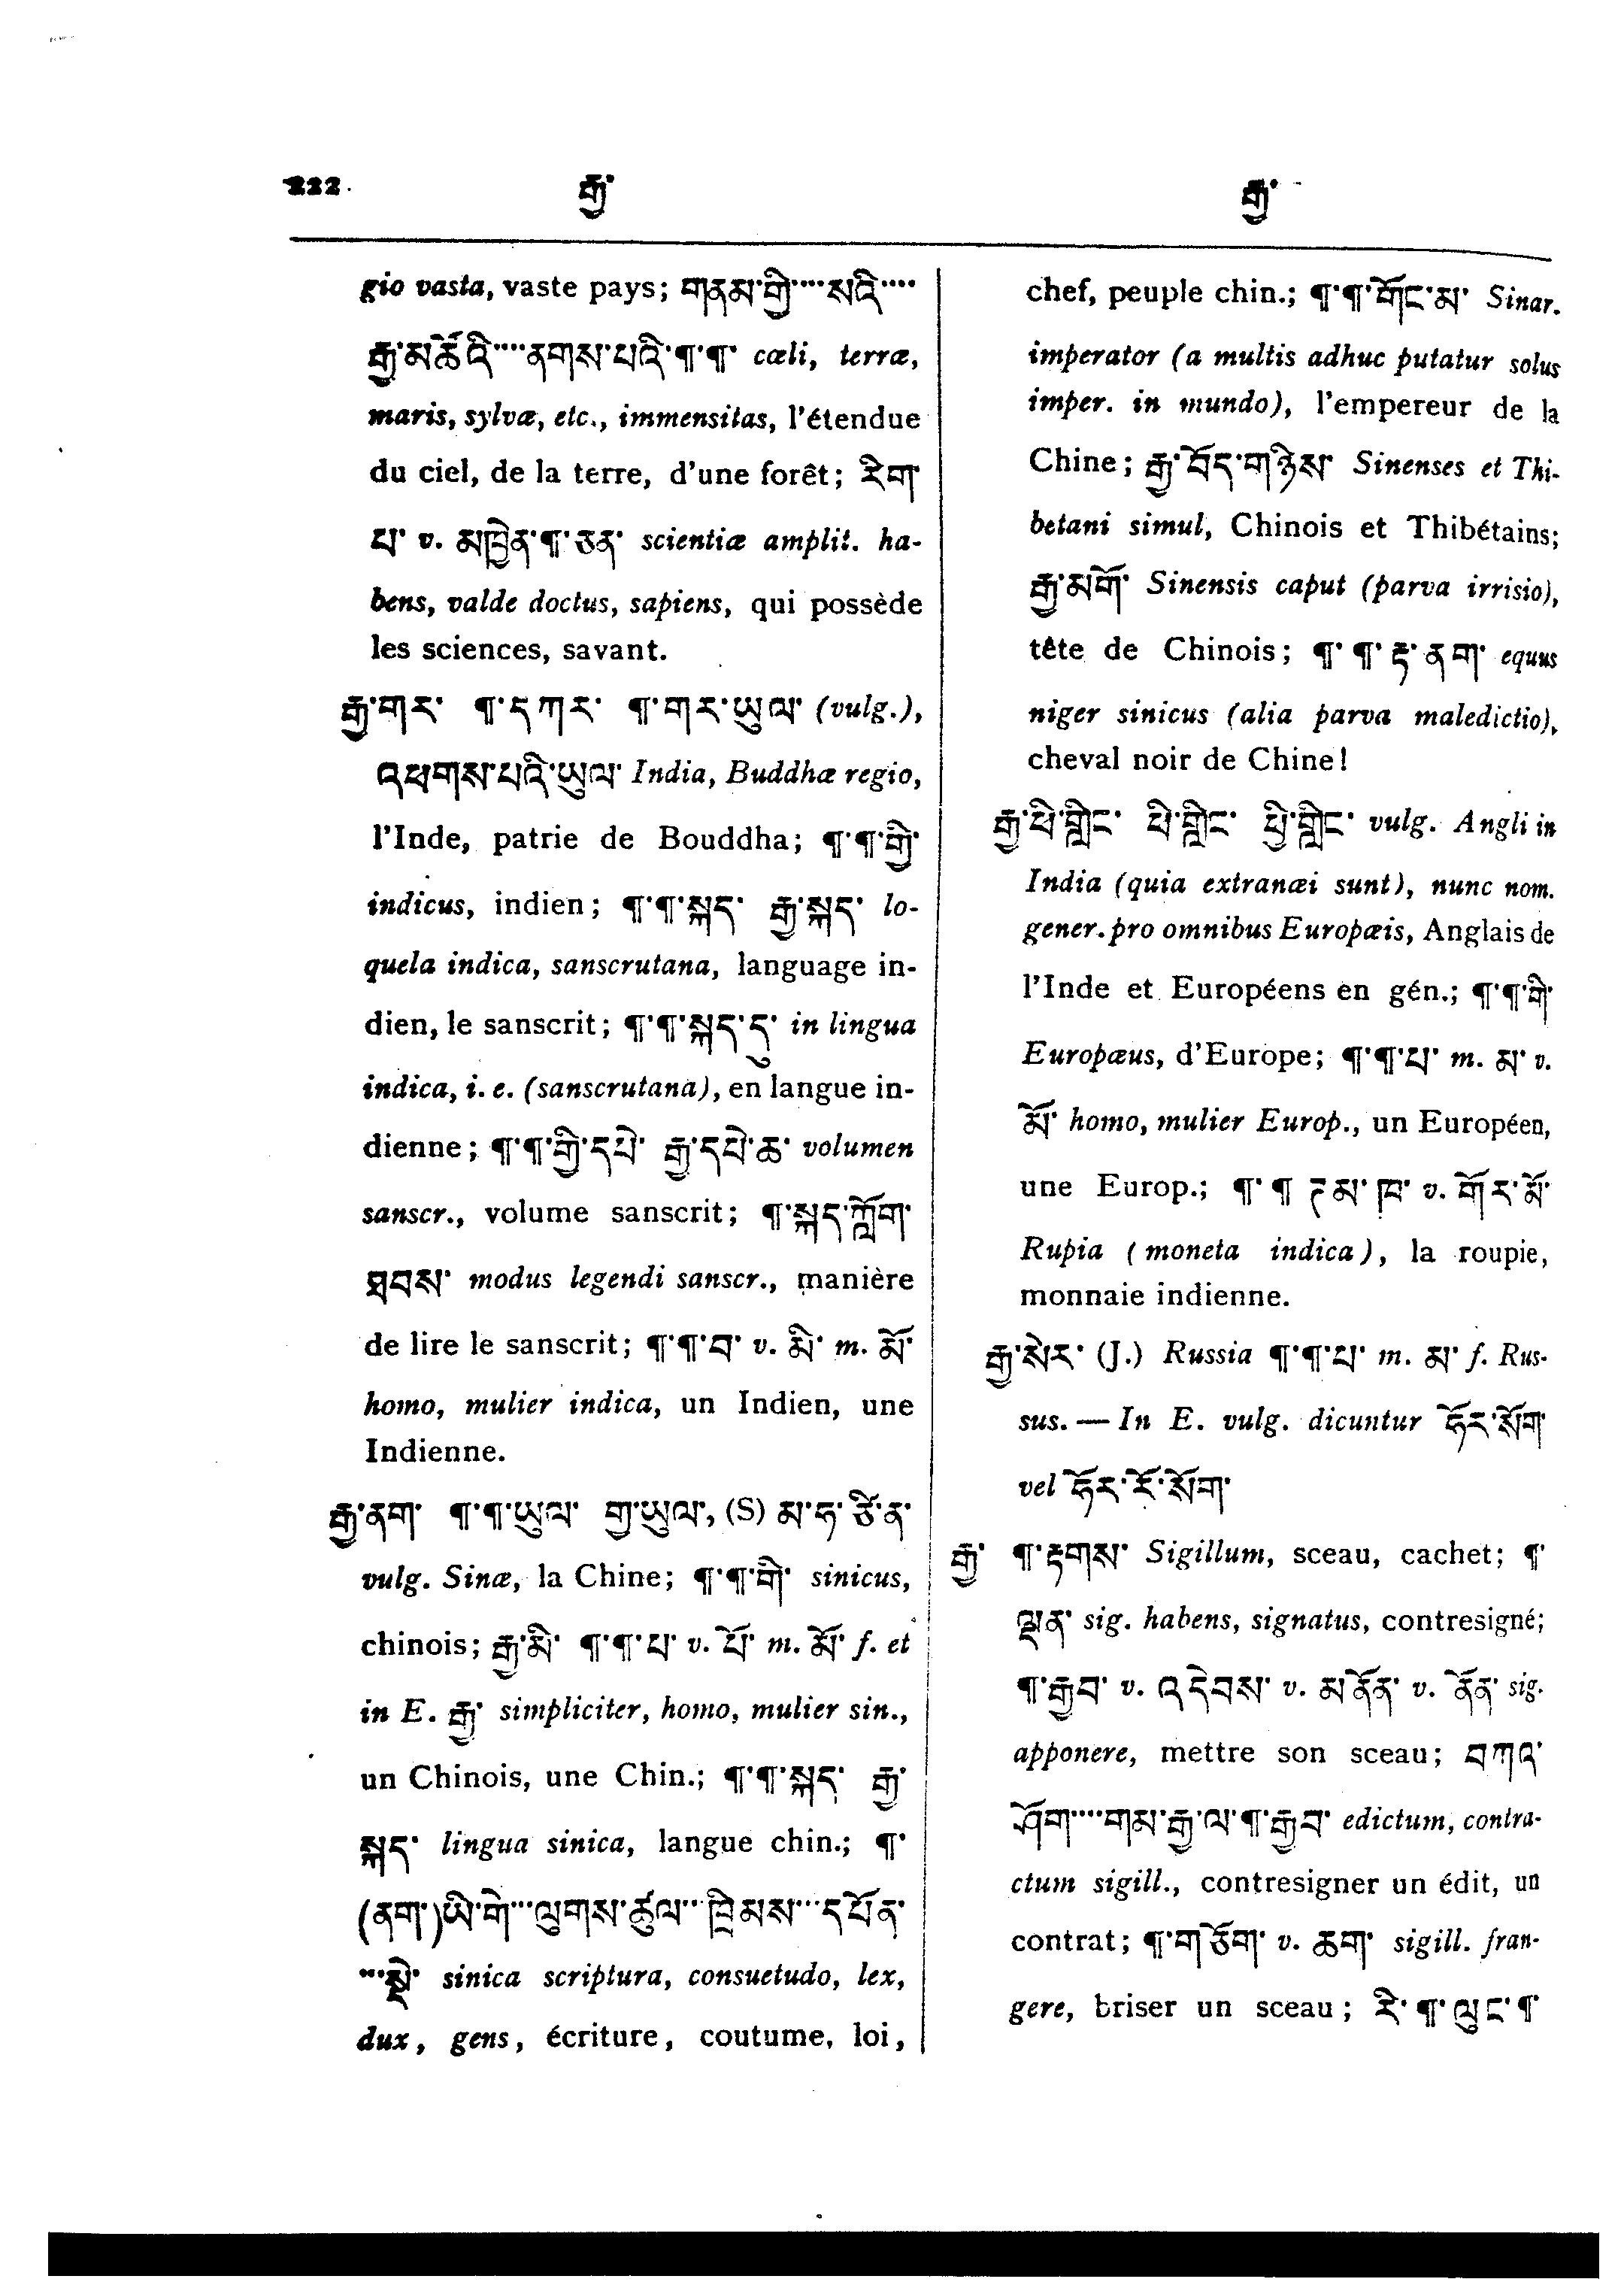 222. རྒྱ་ རྒྱ་
gio vasta, vaste pays; གནམ་གྱི་····སའི་····
རྒྱ་མཚོའི་····ནགས་པའི་¶་¶་ cœli, terræ,
maris, sylvæ, etc., immensitas, l'étendue
du ciel, de la terre, d'une forêt; རིག་
པ་ v. མཁྱེན་¶་ཅན་ scientiæ amplit. ha-
bens, valde doctus, sapiens, qui possède
les sciences, savant.
རྒྱ་གར་ ¶་དཀར་ ¶་གར་ཡུལ་ (vulg.),
འཕགས་པའི་ཡུལ་ India, Buddhæ regio,
l'Inde, patrie de Bouddha; ¶་¶་གྱི་
indicus, indien; ¶་¶་སྐད་ རྒྱ་སྐད་ lo-
quela indica, sanscrutana, language in-
dien, le sanscrit; ¶་¶་སྐད་དུ་ in lingua
indica, i. e. (sanscrutana), en langue in-
dienne; ¶་¶་གྱི་དཔེ་ རྒྱ་དཔེ་ཆ་ volumen
sanscr., volume sanscrit; ¶་སྐད་ཀློག་
ཐབས་ modus legendi sanscr., manière
de lire le sanscrit; ¶་¶་བ་ v. མི་ m. མོ་
homo, mulier indica, un Indien, une
Indienne.
རྒྱ་ནག་ ¶་¶་ཡུལ་ གྱ་ཡུལ་, (S) མ་ཧ་ཙི་ན་
vulg. Sinæ, la Chine; ¶་¶་གི་ sinicus,
chinois; རྒྱ་མི་ ¶་¶་པ་ v. པོ་ m. མོ་ f. et
in E. རྒྱ་ simpliciter, homo, mulier sin.,
un Chinois, une Chin.; ¶་¶་སྐད་ རྒྱ་
སྐད་ lingua sinica, langue chin.; ¶་
(ནག་)ཡི་གེ···ལུགས་ཚུལ···ཁྲིམས···དཔོན་
···སྡེ་ sinica scriptura, consuetudo, lex,
dux, gens, écriture, coutume, loi,
chef, peuple chin.; ¶་¶་གོང་མ་ Sinar.
imperator (a multis adhuc putatur solus
imper. in mundo), l'empereur de la
Chine; རྒྱ་བོད་གཉིས་ Sinenses et Thi-
betani simul, Chinois et Thibétains;
རྒྱ་མགོ་ Sinensis caput (parva irrisio),
tête de Chinois; ¶་¶་རྟ་ནག་ equus
niger sinicus (alia parva maledictio),
cheval noir de Chine!
རྒྱ་ཕི་གླིང་ ཕི་གླིང་ ཕྱི་གླིང་ vulg. Angli in
India (quia extranæi sunt), nunc nom.
gener. pro omnibus Europæis, Anglais de
l'Inde et Européens en gén.; ¶་¶་གི་
Europæus, d'Europe; ¶་¶་པ་ m. མ་ v.
མོ་ homo, mulier Europ., un Européen,
une Europ.; ¶་¶ ཊམ་ཁ་ v. གོར་མོ་
Rupia (moneta indica), la roupie,
monnaie indienne.
རྒྱ་སེར་ (J.) Russia ¶་¶་པ་ m. མ་ f. Rus-
sus. — In E. vulg. dicuntur ཧོར་སོག་
vel ཧོར་རོ་སོག་
རྒྱ་ ¶་རྟགས་ Sigillum, sceau, cachet; ¶་
ལྡན་ sig. habens, signatus, contresigné;
¶་རྒྱབ་ v. འདེབས་ v. མནོན་ v. ནོན་ sig.
apponere, mettre son sceau; བཀའ་
ཤོག····གམ་རྒྱ་ལ་¶་རྒྱབ་ edictum, contra-
ctum sigill., contresigner un édit, un
contrat; ¶་གཅོག་ v. ཆག་ sigill. fran-
gere, briser un sceau; རི་¶་ལུང་¶་